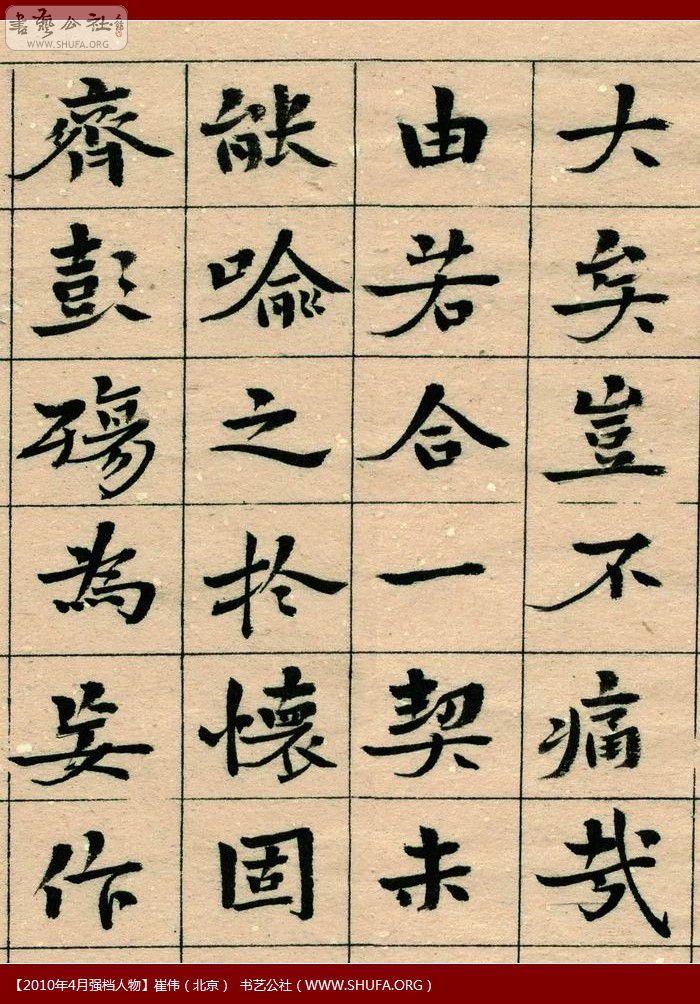 書藝公社
WWW.SHUFA.ORG
大矣豈不痛哉
由若合一契未
能喻之於懷固
齊彭殤為妄作
【2010年4月强档人物】崔伟（北京） 书艺公社（WWW.SHUFA.ORG）